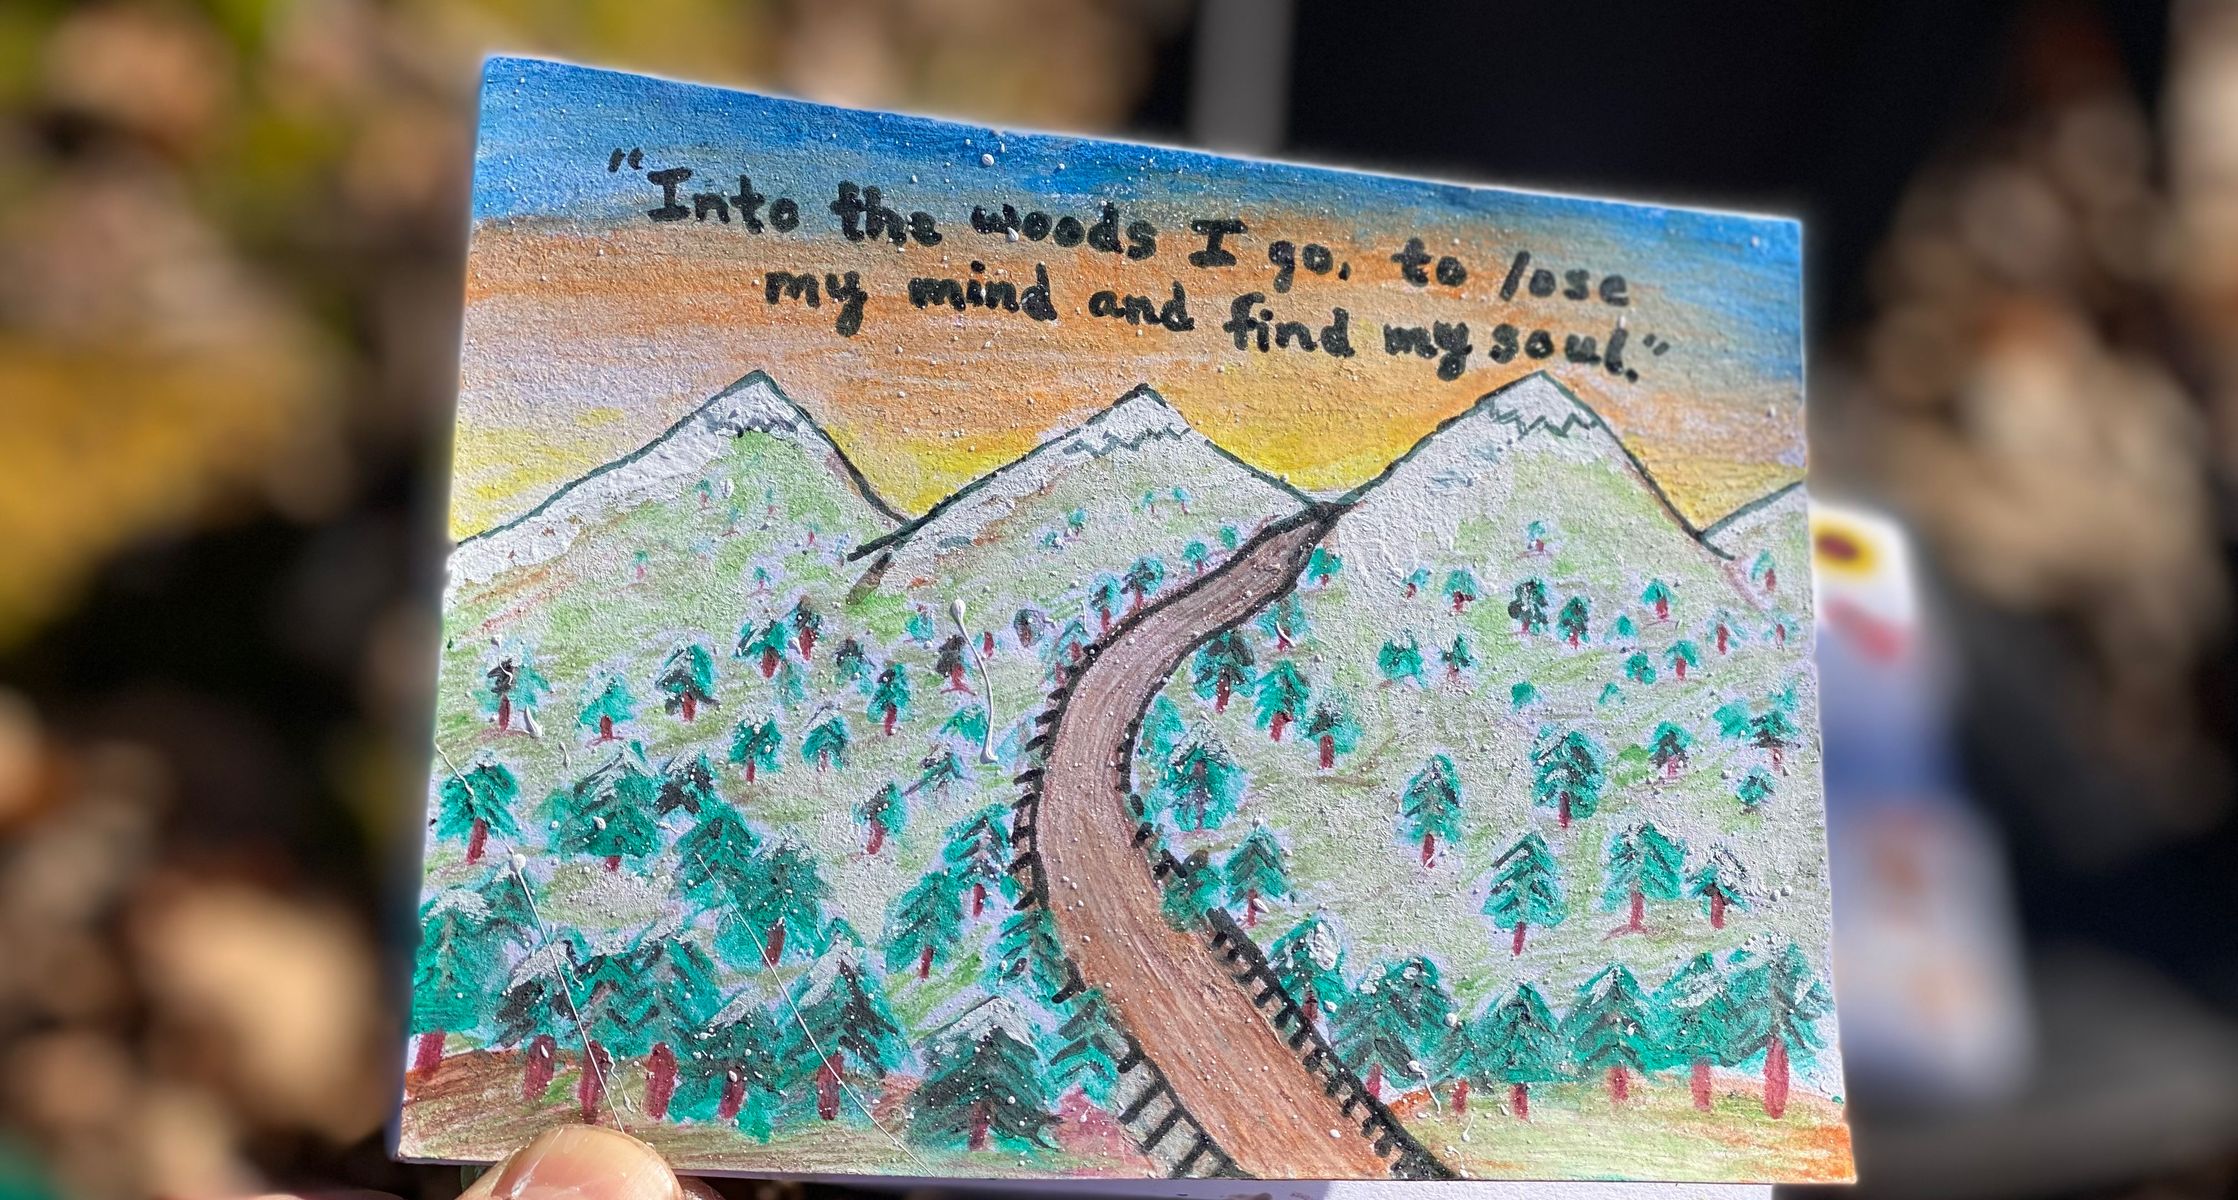 "Into the woods I go, to lose
my mind and find my soul."